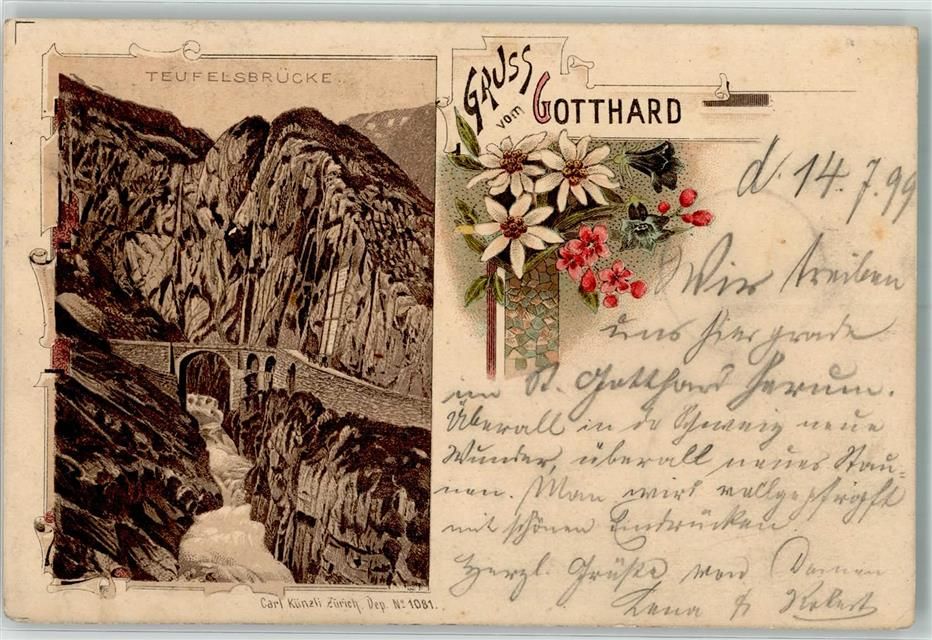 TEUFELSBRÜCKE.
GRUSS
vom GOTTHARD
d. 14. 7. 99
Wir treiben
uns hier grade
im St. Gotthard herum.
Überall in der Schweiz neue
Wunder, überall neues Stau-
nen. Man wird vollgepfropft
mit schönen Eindrücken.
Herzl. Grüße von
Lena & Robert
Carl Künzli Zürich, Dep. No 1081.